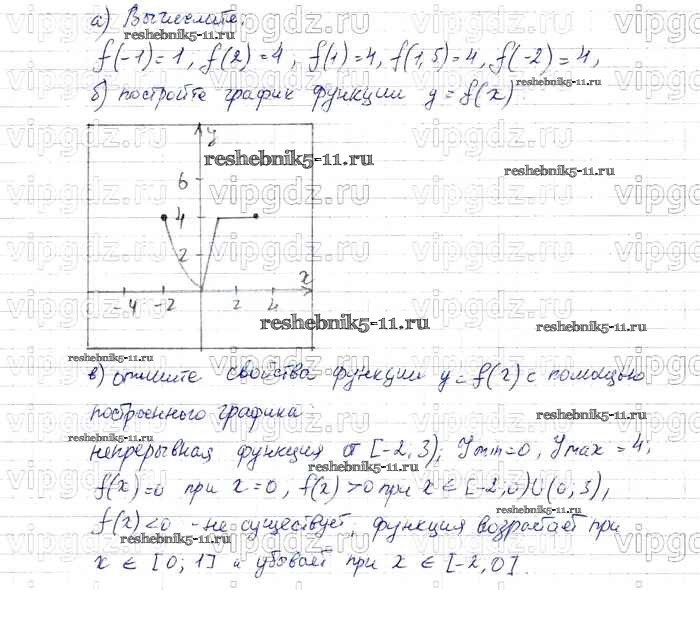 а) Вычислите.
reshebnik5-11.ru
f(-1)=1, f(2)=4, f(1)=4, f(1,5)=4, f(-2)=4,
б) постройте график функции y=f(x).
y
reshebnik5-11.ru
reshebnik5-11.ru
6
4
2
x
-4 -2 2 4
reshebnik5-11.ru
reshebnik5-11.ru
reshebnik5-11.ru
в) опишите свойства функции y=f(x) с помощью
построенного графика
reshebnik5-11.ru
reshebnik5-11.ru
непрерывная функция от [-2,3); Ymin=0, Ymax=4;
reshebnik5-11.ru
f(x)=0 при x=0, f(x)>0 при x∈[-2,0)∪(0,3),
reshebnik5-11.ru
f(x)<0 - не существует, функция возрастает при
reshebnik5-11.ru
x∈[0;1] и убывает при x∈[-2,0].
vipgdz.ru